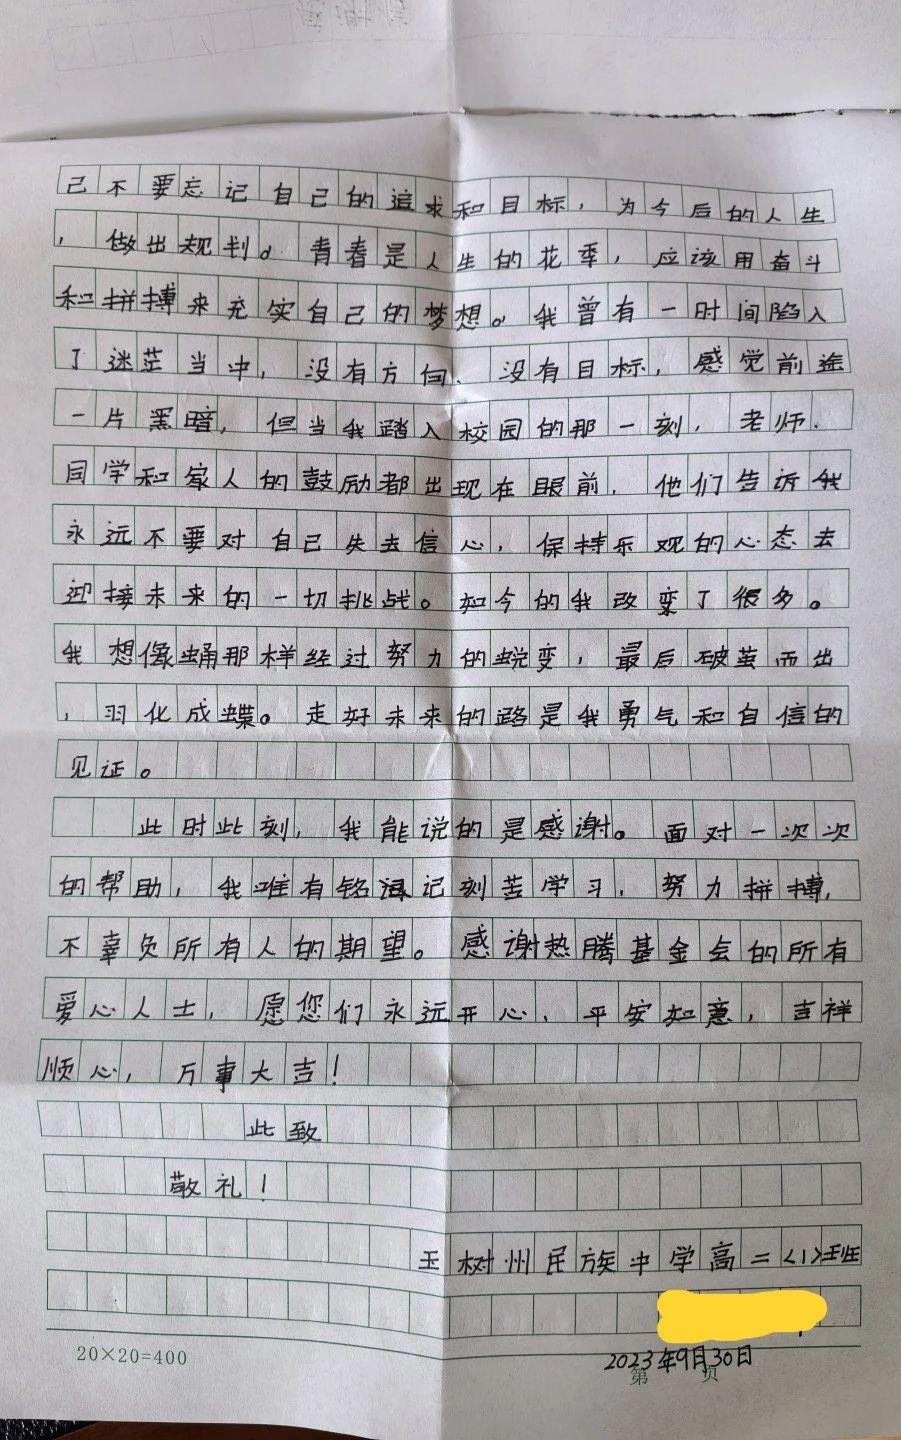 己不要忘记自己的追求和目标，为今后的人生
，做出规判。青春是人生的花季，应该用奋斗
和拼搏来充实自己的梦想。我曾有一时间陷入
了迷茫当中，没有方向、没有目标，感觉前途
一片黑暗，但当我踏入校园的那一刻，老师、
同学和家人的鼓励都出现在眼前，他们告诉我
永远不要对自己失去信心，保持乐观的心态去
迎接未来的一切挑战。如今的我改变了很多。
我想像蛹那样经过努力的蜕变，最后破茧而出
，羽化成蝶。走好未来的路是我勇气和自信的
见证。
此时此刻，我能说的是感谢。面对一次次
的帮助，我唯有铭记刻苦学习，努力拼搏，
不辜负所有人的期望。感谢热腾基金会的所有
爱心人士，愿您们永远开心、平安如意，吉祥
顺心，万事大吉！
此致
敬礼！
玉树州民族中学高二〈1〉班
2023年9月30日
20×20=400
第 页